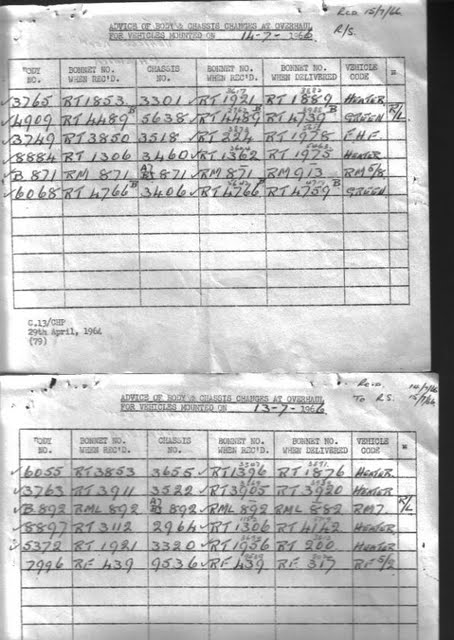 Rcd 15/7/66
ADVICE OF BODY & CHASSIS CHANGES AT OVERHAUL
FOR VEHICLES MOUNTED ON 14-7-1966
R/S.
BODY NO. BONNET NO. WHEN REC'D. CHASSIS NO. BONNET NO. WHEN REC'D. BONNET NO. WHEN DELIVERED VEHICLE CODE
✓3765 RT1853 3301 ✓RT1921 RT1889 HEATER
✓4909 RT4489B 5638 ✓RT4489B RT4739B GREEN R/L
✓3749 RT3850 3518 ✓RT224 RT1978 F.H.F.
✓8884 RT1306 3460 ✓RT1362 RT1975 HEATER
✓B871 RM 871 871 ✓RM871 RM913 RM5/8
✓6068 RT4766B 3406 ✓RT4766B RT4759B GREEN
C.13/CHP
29th April, 1964
(79)
Rcd.
ADVICE OF BODY & CHASSIS CHANGES AT OVERHAUL
FOR VEHICLES MOUNTED ON 13-7-1966
To R.S.
BODY NO. BONNET NO. WHEN REC'D. CHASSIS NO. BONNET NO. WHEN REC'D. BONNET NO. WHEN DELIVERED VEHICLE CODE
✓6055 RT3853 3655 ✓RT1396 RT1876 HEATER
✓3763 RT3911 3522 ✓RT3905 RT3920 HEATER
✓B.892 RML 892 892 ✓RML 892 RML 882 RM7 R/L
✓8897 RT3112 2964 ✓RT1306 RT4142 HEATER
✓5372 RT1921 3320 ✓RT1956 RT 200 HEATER
7996 RF 439 9536 ✓RF 439 RF 317 RF 5/2